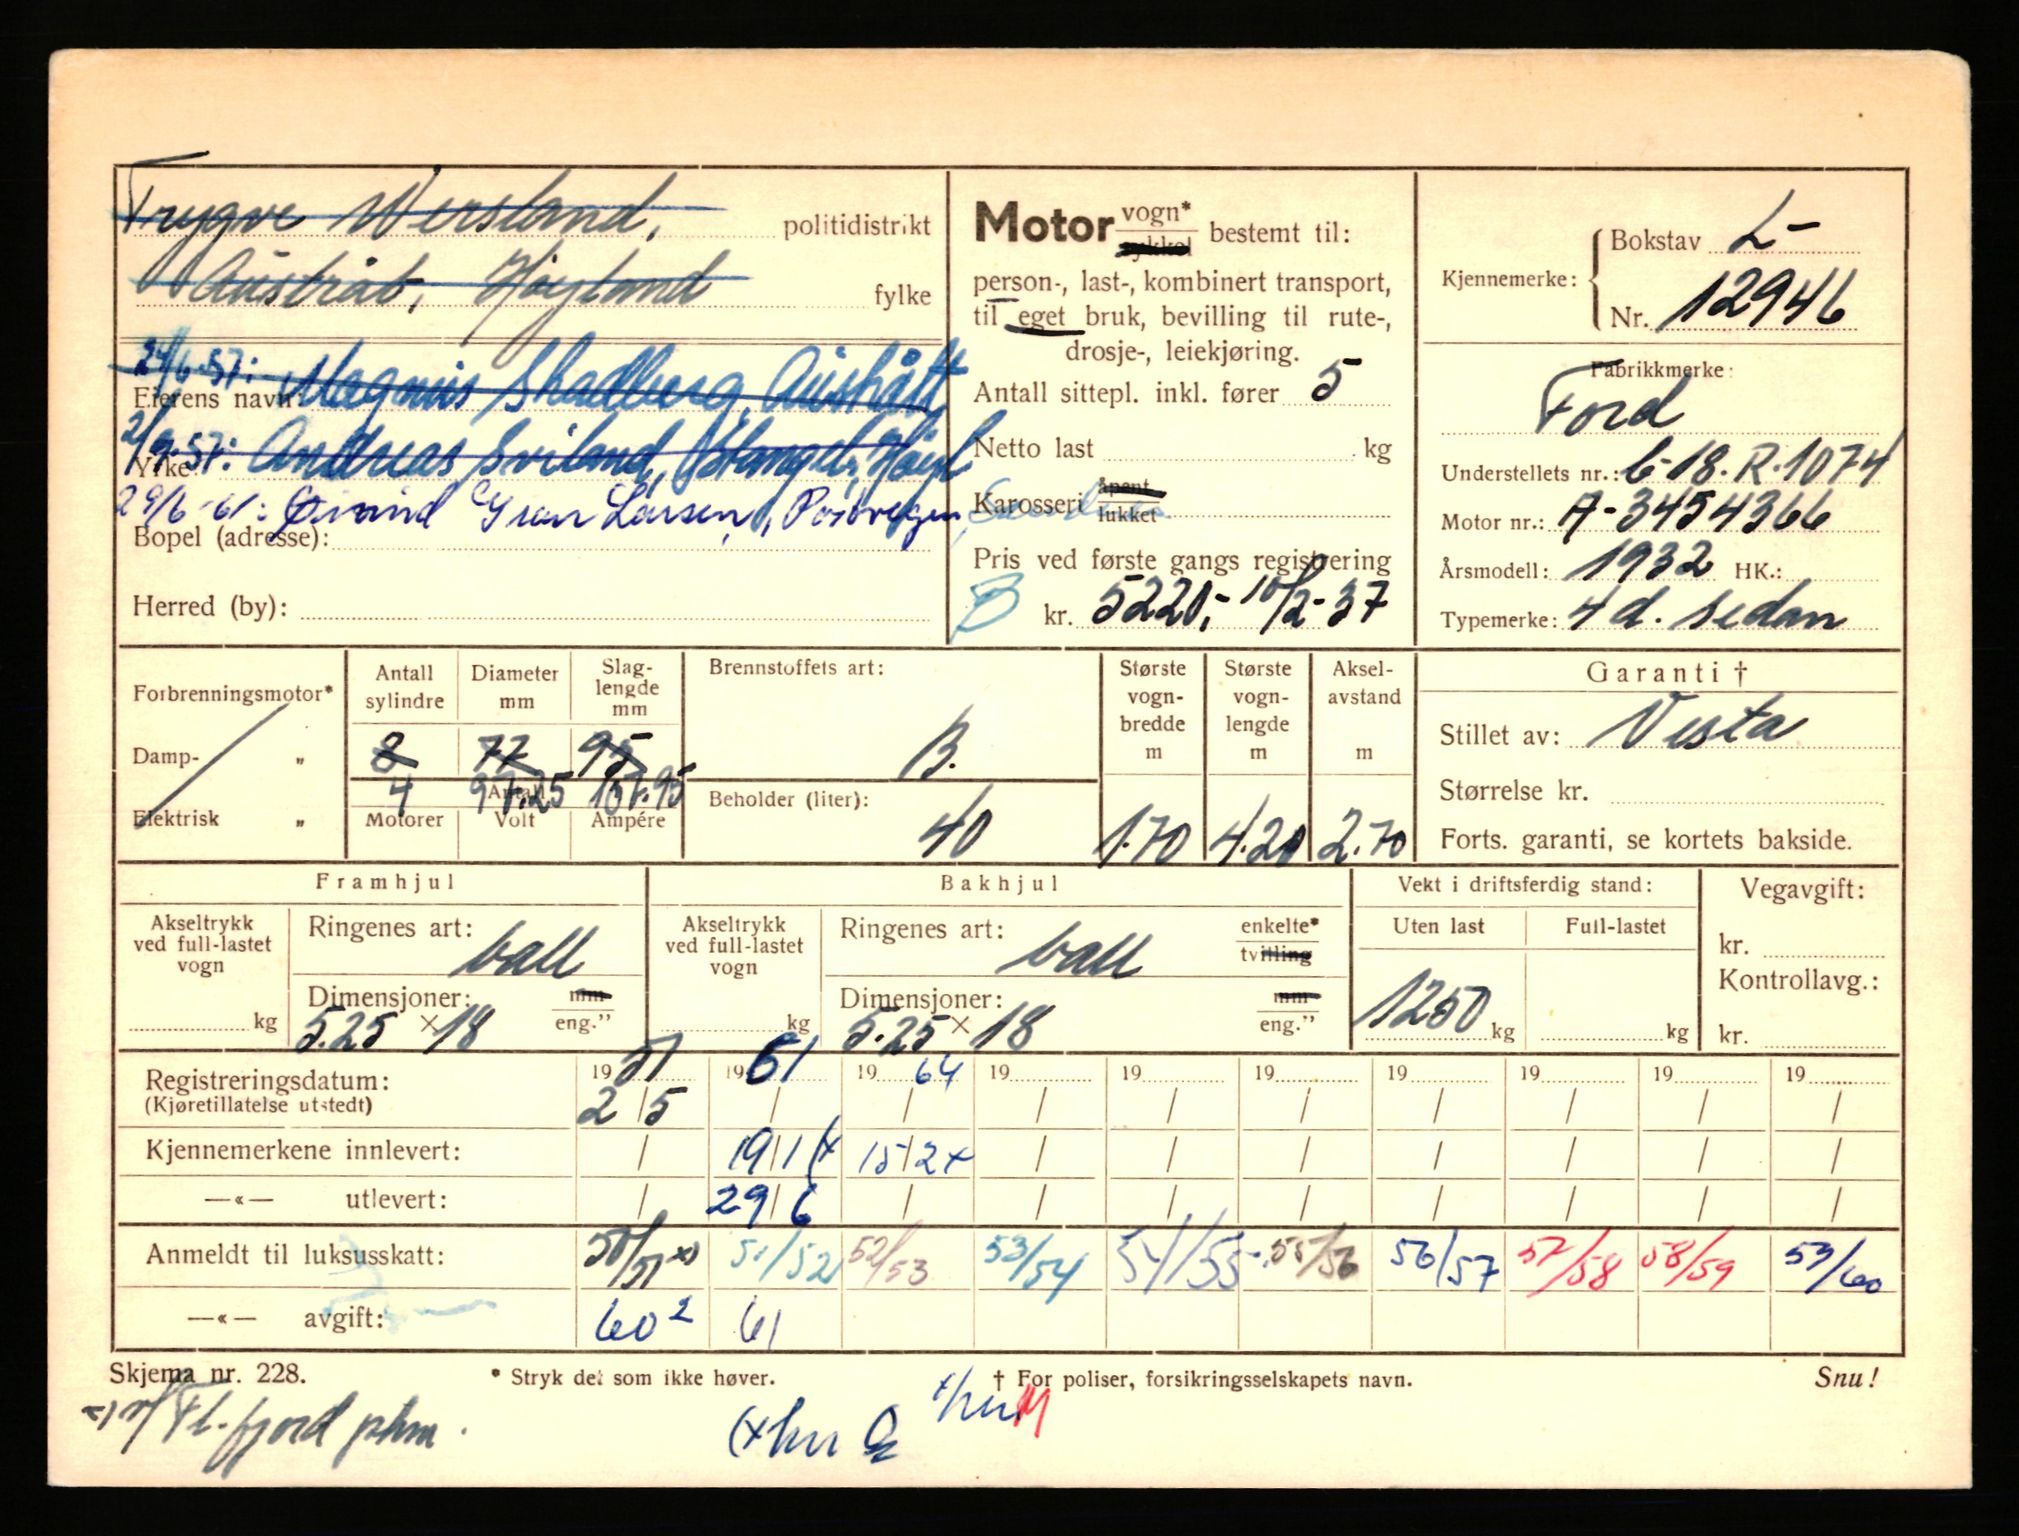 Trygve Wersland, politidistrikt
Austråt, Høyland fylke
24/6-57: Magnus Skadberg, Austrått
Eierens navn:
2/9-57: Andreas Sviland, Stangel, Høyl
Yrke
29/6-61: Øivind Gran Larsen, Postvegen
Bopel (adresse):
Herred (by):
Motor vogn* sykkel bestemt til:
person-, last-, kombinert transport,
til eget bruk, bevilling til rute-,
drosje-, leiekjøring.
Antall sittepl. inkl. fører 5
Netto last kg
Karosseri åpent lukket
Pris ved første gangs registrering
B kr. 5220,- 10/2-37
Kjennemerke: Bokstav L-
Nr. 12946
Fabrikkmerke:
Ford
Understellets nr.: 6-18.R.1074
Motor nr.: A-3454366
Årsmodell: 1932 HK.:
Typemerke: 4 d. sedan
Forbrenningsmotor*
Damp- „
Elektrisk „
Antall sylindre
Diameter mm
Slaglengde mm
8 77 95
4 97.25 107.95
Antall
Motorer Volt Ampére
Brennstoffets art:
B.
Beholder (liter):
40
Største vognbredde m
1.70
Største vognlengde m
4.20
Akselavstand m
2.70
Garanti †
Stillet av: Vesta
Størrelse kr.
Forts. garanti, se kortets bakside.
Framhjul
Akseltrykk ved full-lastet vogn
kg
Ringenes art:
ball
Dimensjoner: mm eng.”
5.25 × 18
Bakhjul
Akseltrykk ved full-lastet vogn
kg
Ringenes art: enkelte* tvilling
ball
Dimensjoner: mm eng.”
5.25 × 18
Vekt i driftsferdig stand:
Uten last Full-lastet
1250 kg kg
Vegavgift:
kr.
Kontrollavg.:
kr.
Registreringsdatum: 1951 1961 1964 19 19 19 19 19 19 19
(Kjøretillatelse utstedt) 2/5 / / / / / / / / /
Kjennemerkene innlevert: / 19/1 (x 15/2 x / / / / / / /
—«— utlevert: / 29/6 / / / / / / / /
Anmeldt til luksusskatt: 50/51 x) 51/52 52/53 53/54 54/55 55/56 56/57 57/58 58/59 59/60
—«— avgift: 60 2 61
Skjema nr. 228. * Stryk det som ikke høver. † For poliser, forsikringsselskapets navn. Snu!